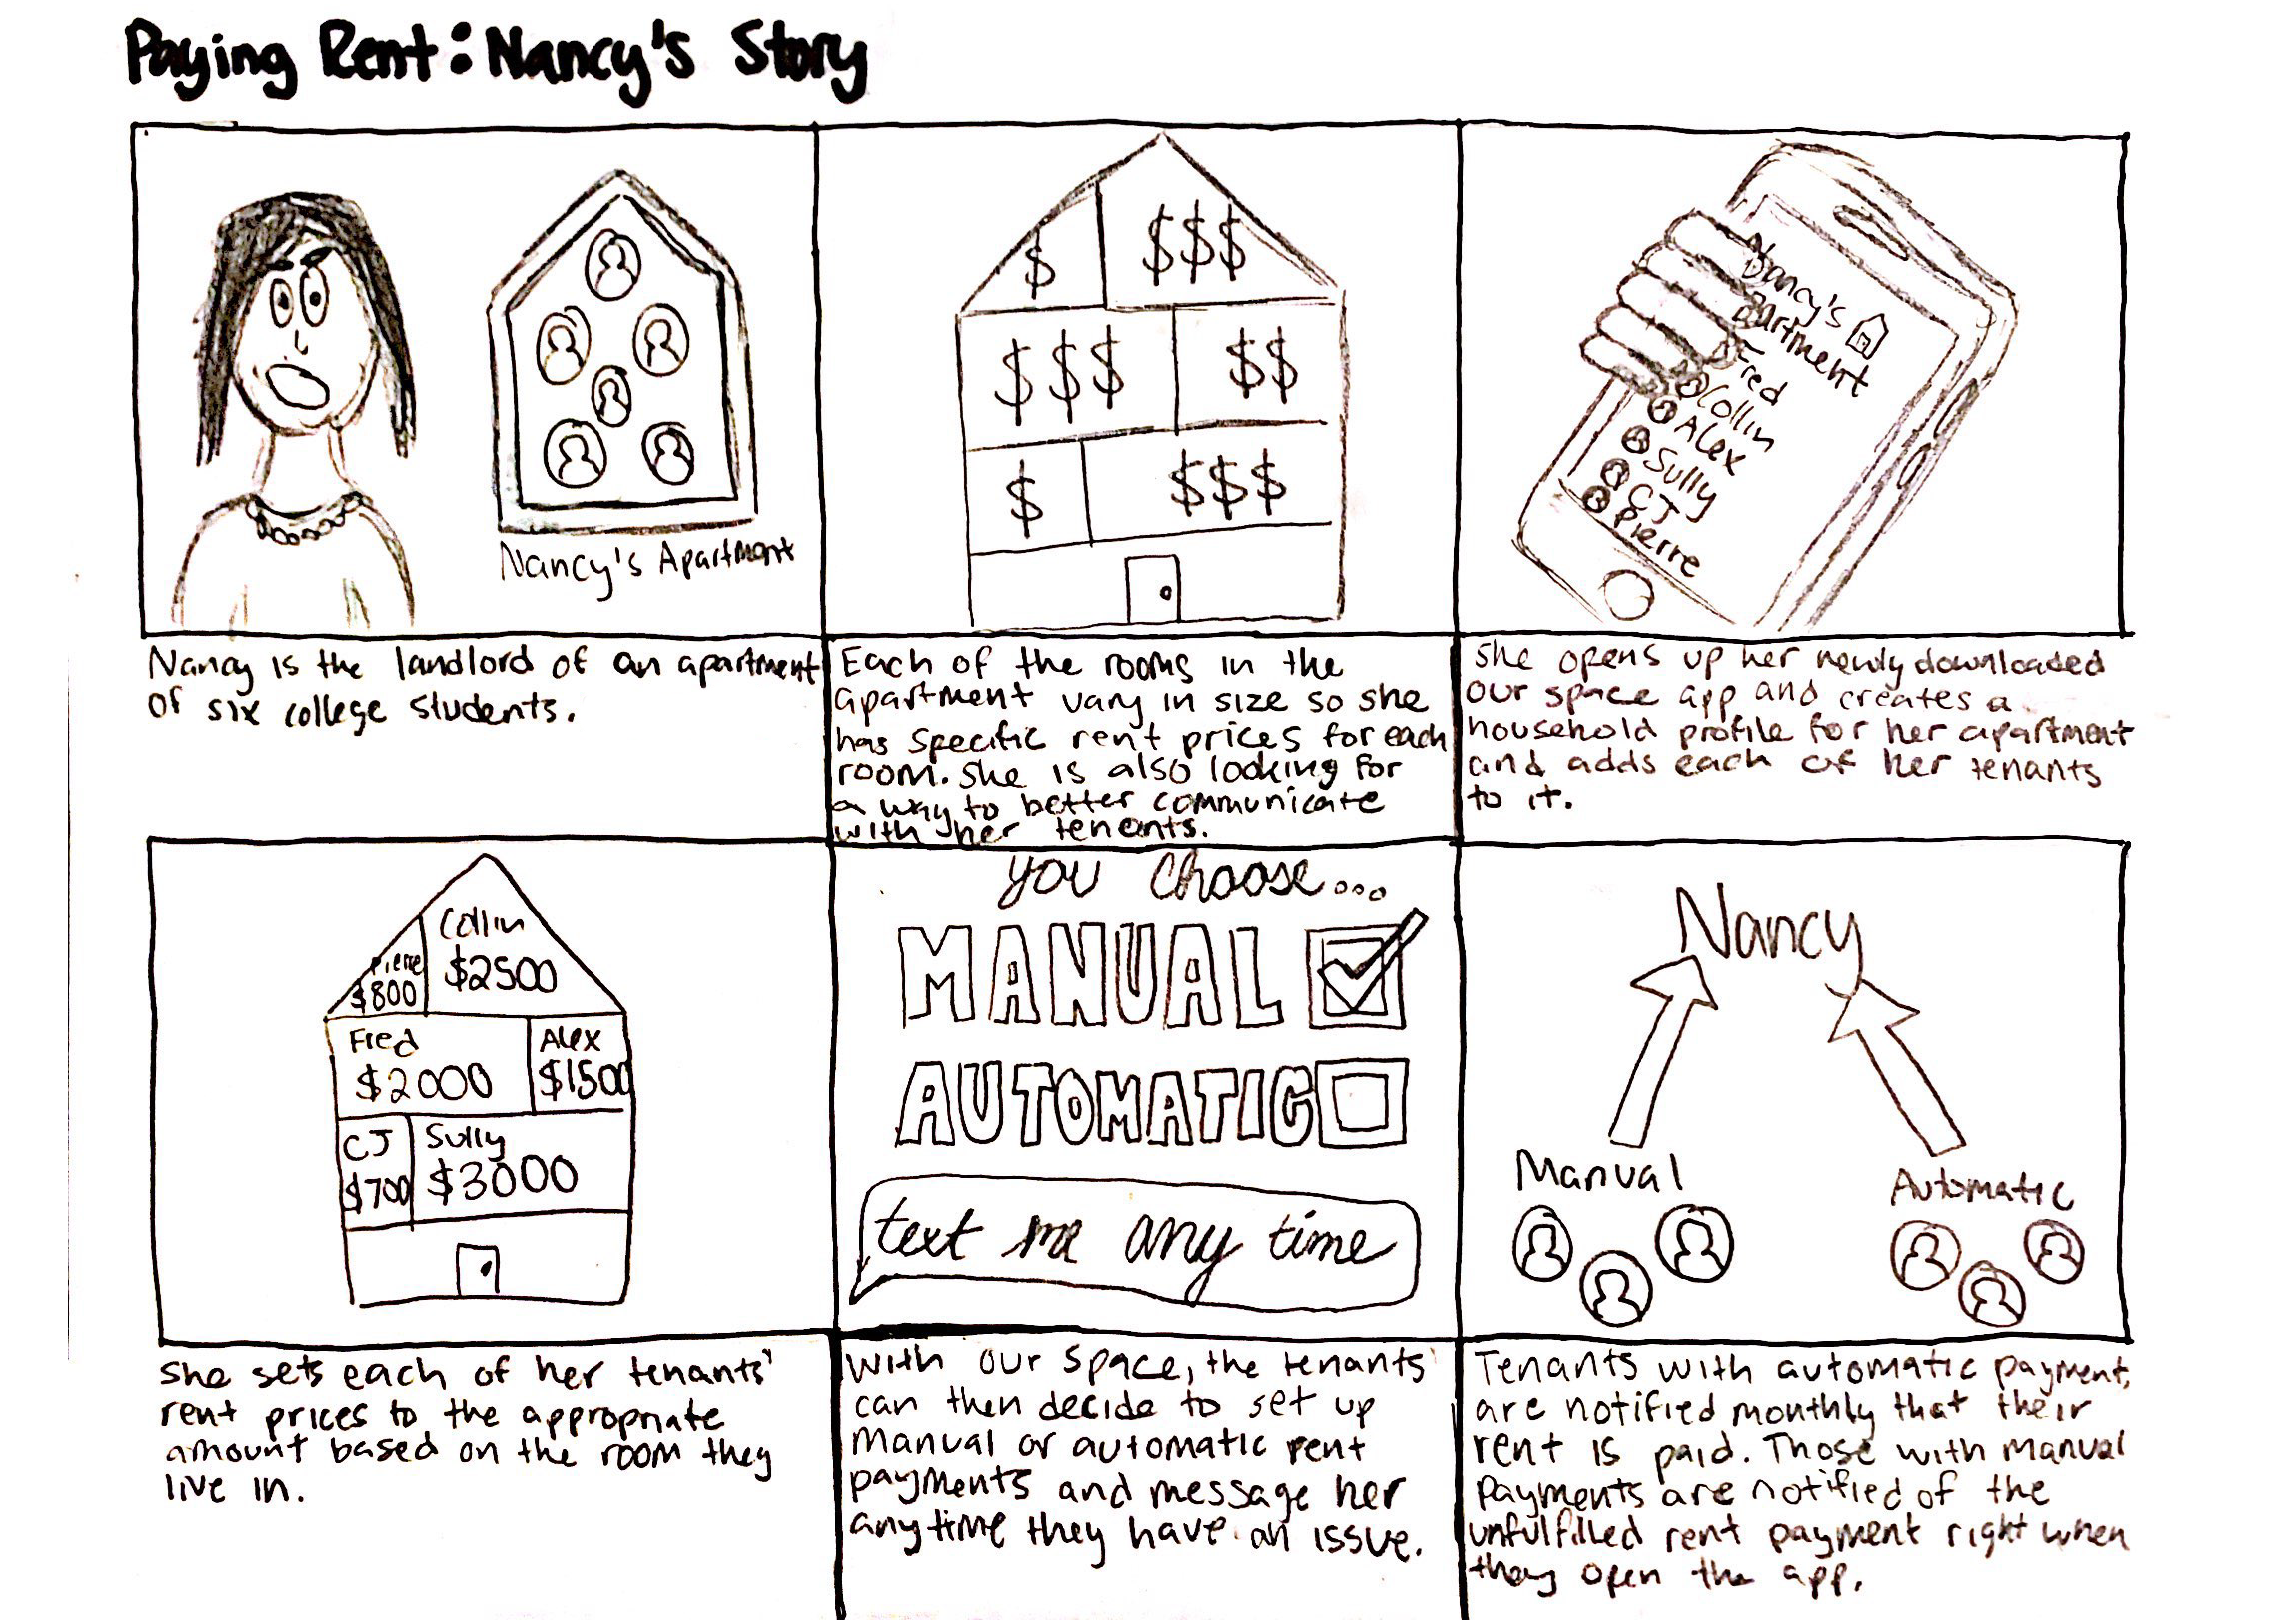 Paying Rent: Nancy's Story
Nancy's Apartment
Nancy is the landlord of an apartment
of six college students.
$
$$$
$$$
$$
$
$$$
Each of the rooms in the
apartment vary in size so she
has specific rent prices for each
room. She is also looking for
a way to better communicate
with her tenants.
Nancy's
partment
Fred
Collin
Alex
Sully
CJ
Pierre
She opens up her newly downloaded
our space app and creates a
household profile for her apartment
and adds each of her tenants
to it.
Collin
$2500
Pierre
$800
Fred
$2000
Alex
$1500
CJ
$700
Sully
$3000
She sets each of her tenants'
rent prices to the appropriate
amount based on the room they
live in.
you choose...
MANUAL
AUTOMATIC
text me any time
With our space, the tenants
can then decide to set up
manual or automatic rent
payments and message her
anytime they have an issue.
Nancy
Manual
Automatic
Tenants with automatic payment,
are notified monthly that their
rent is paid. Those with manual
payments are notified of the
unfulfilled rent payment right when
they open the app.